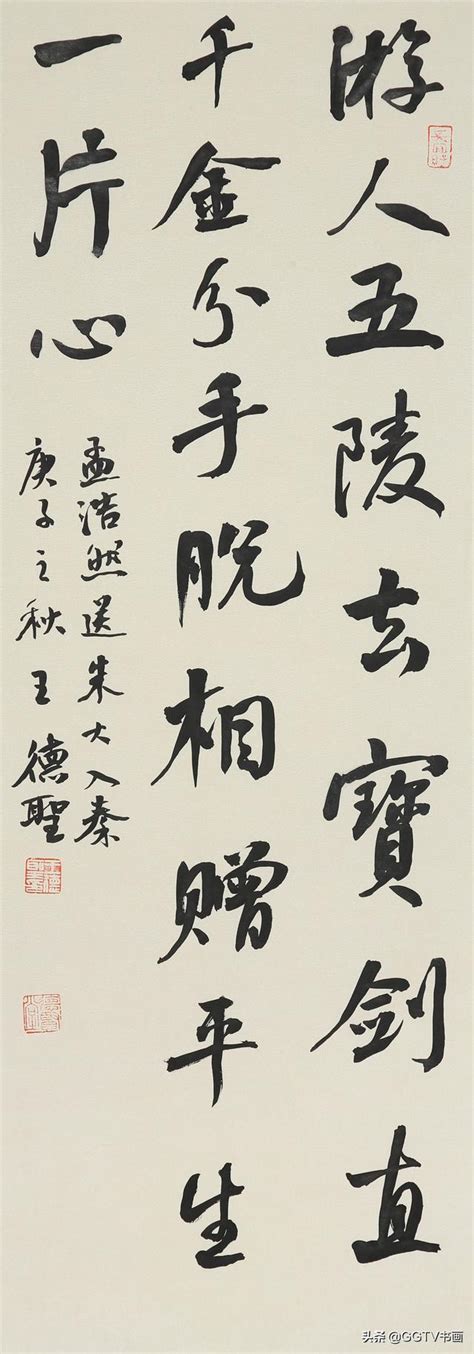 游人五陵去寶劍直
千金分手脱相贈平生
一片心
孟浩然送朱大入秦
庚子之秋王德聖
头条@GGTV书画